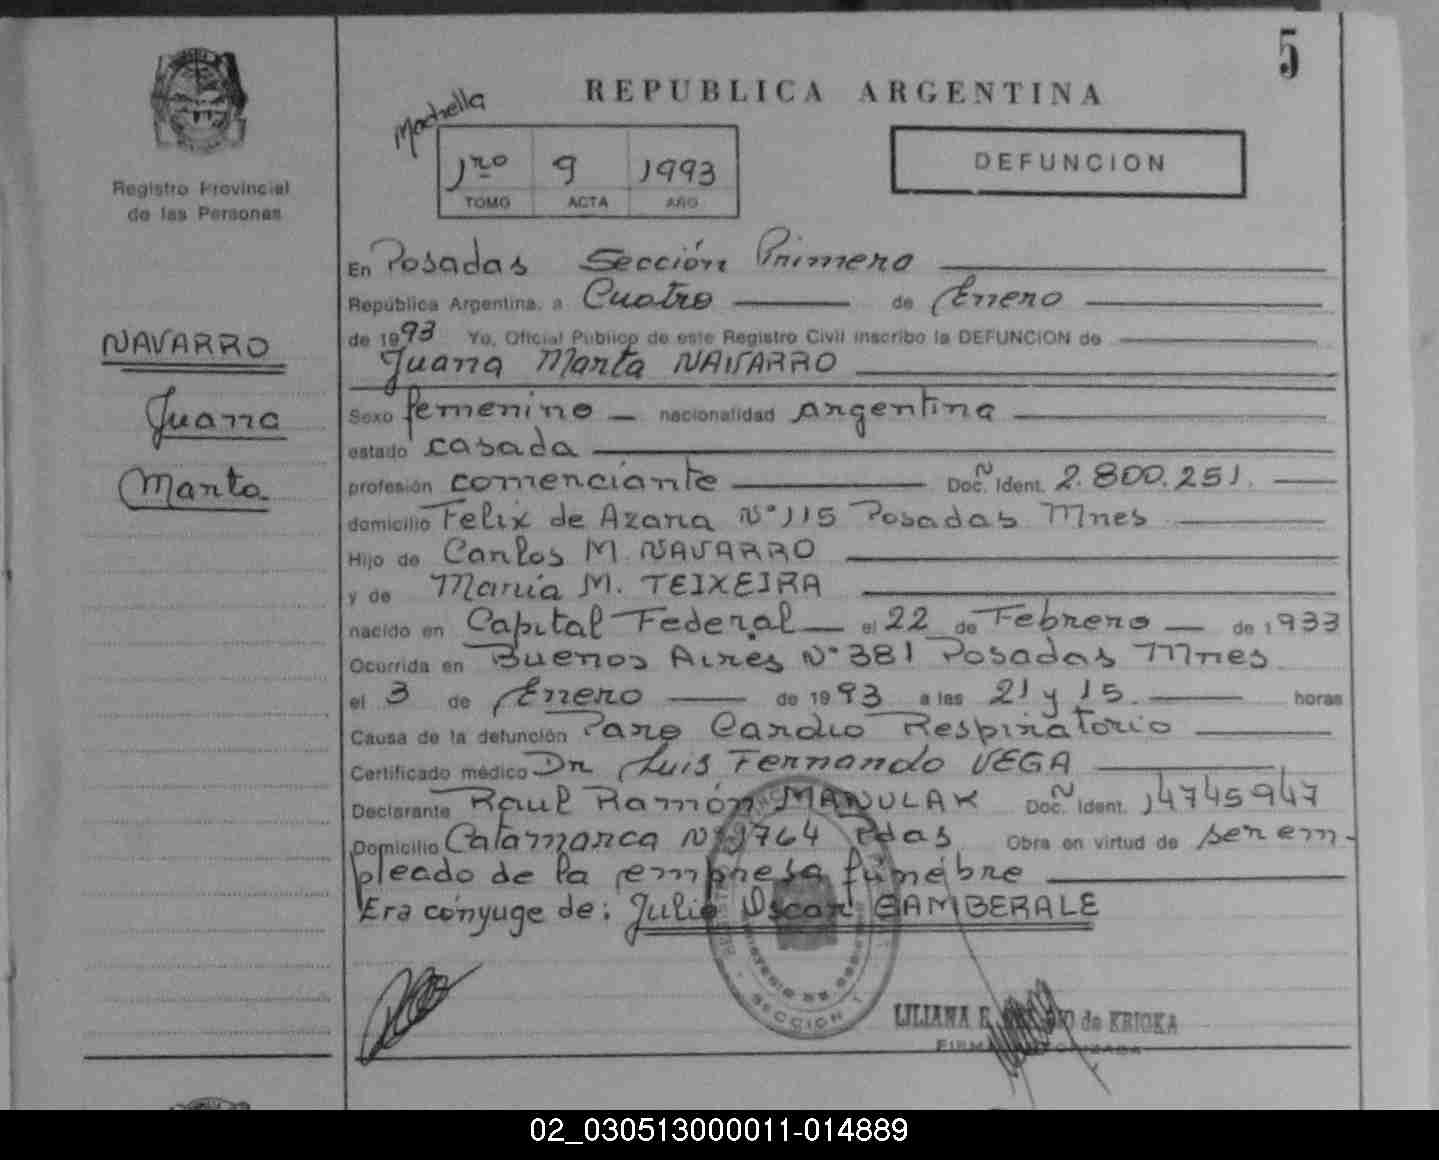 5
REPUBLICA ARGENTINA
Machella
1ro 9 1993
TOMO ACTA AÑO
DEFUNCION
Registro Provincial
de las Personas
NAVARRO
Juana
Marta
En Posadas Sección Primera
República Argentina, a Cuatro de Enero
de 1993 Yo, Oficial Público de este Registro Civil inscribo la DEFUNCION de
Juana Marta NAVARRO
Sexo femenino nacionalidad argentina
estado casada
profesión comerciante Doc. Ñ Ident. 2.800.251.
domicilio Felix de Azara N° 115 Posadas Mnes
Hijo de Carlos M. NAVARRO
y de Maria M. TEIXEIRA
nacido en Capital Federal el 22 de Febrero de 1933
Ocurrida en Buenos Aires N° 381 Posadas Mnes
el 3 de Enero de 1993 a las 21 y 15. horas
Causa de la defunción Paro Cardio Respiratorio
Certificado médico Dr Luis Fernando VEGA
Declarante Raul Ramón MANULAK Doc. Ñ Ident. 14745947
Domicilio Catamarca N° 1764 Pdas Obra en virtud de ser em-
pleado de la empresa fúnebre
Era cónyuge de: Julio Oscar GAMBERALE
SECCION 1
LILIANA E. de KRIOKA
FIRMA AUTORIZADA
02_030513000011-014889